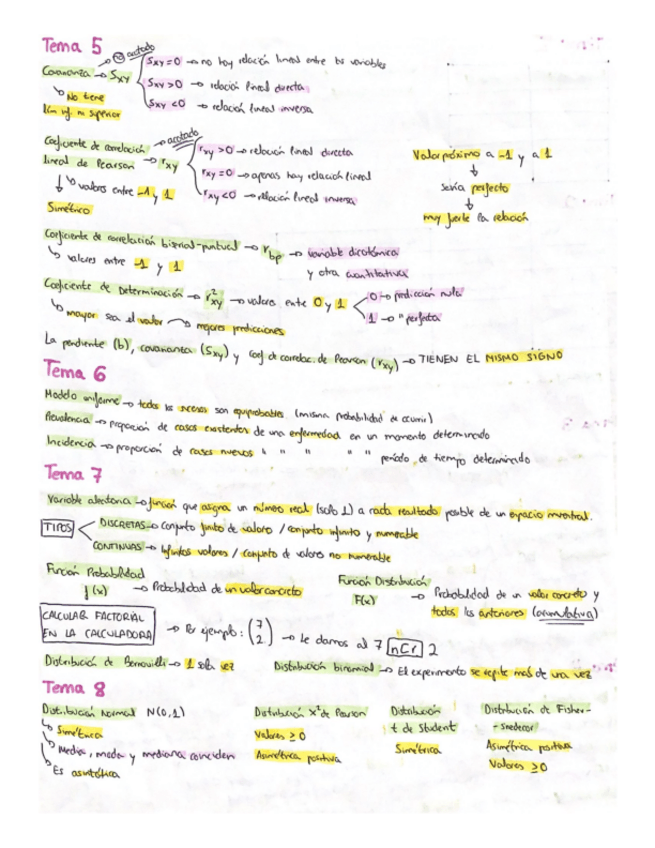 Tema 5
Covarianza → Sxy
NO acotado
No tiene
lím inf. ni superior
Sxy = 0 → no hay relación lineal entre las variables
Sxy > 0 → relación lineal directa
Sxy < 0 → relación lineal inversa
Coeficiente de correlación
lineal de Pearson → rxy
acotado
valores entre -1 y 1
Simétrico
rxy > 0 → relación lineal directa
rxy = 0 → apenas hay relación lineal
rxy < 0 → relación lineal inversa
Valor próximo a -1 y a 1
↓
sería perfecto
↓
muy fuerte la relación
Coeficiente de correlación biserial-puntual → rbp → variable dicotómica
y otra cuantitativa
valores entre -1 y 1
Coeficiente de Determinación → r²xy → valores entre 0 y 1
0 → predicción nula
1 → " perfecta
mayor sea el valor → mejores predicciones
La pendiente (b), covarianza (Sxy) y Coef. de correlac. de Pearson (rxy) → TIENEN EL MISMO SIGNO
Tema 6
Modelo uniforme → todos los sucesos son equiprobables (misma probabilidad de ocurrir)
Prevalencia → proporción de casos existentes de una enfermedad en un momento determinado
Incidencia → proporción de casos nuevos " " " " " período de tiempo determinado
Tema 7
Variable aleatoria → función que asigna un número real (solo 1) a cada resultado posible de un espacio muestral.
TIPOS
DISCRETAS → conjunto finito de valores / conjunto infinito y numerable
CONTINUAS → Infinitos valores / conjunto de valores no numerable
Función Probabilidad
f(x) → Probabilidad de un valor concreto
Función Distribución
F(x) → Probabilidad de un valor concreto y
todos los anteriores (acumulativa)
CALCULAR FACTORIAL
EN LA CALCULADORA → Por ejemplo: (7 2) → Le damos al 7 nCr 2
Distribución de Bernouilli → 1 sola vez
Distribución binomial → El experimento se repite más de una vez
Tema 8
Distribución Normal N(0,1)
Simétrica
Media, moda y mediana coinciden
Es asintótica
Distribución X² de Pearson
Valores ≥ 0
Asimétrica positiva
Distribución
t de Student
Simétrica
Distribución de Fisher-
- Snedecor
Asimétrica positiva
Valores ≥ 0